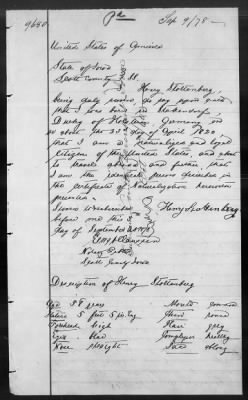 9680
Pd
Sep 9/78
United States of America
State of Iowa
Scott County SS.
Henry Stoltenberg
being duly sworn, do say upon oath
that I was born in
Duchy of Holstein, Germany on
or about the day of April 1820
that I am a naturalized and loyal
citizen of the United States, and about
to travel abroad and further that
I am the identical person described in
the certificate of Naturalization herewith
presented.
Sworn & subscribed
Henry Stoltenberg
before me this
day of September
Notary Public
Scott County Iowa
Description of Henry Stoltenberg
Age 58 years
Mouth
Stature 5 feet 5 Eng
Chin round
Forehead high
Hair grey
Eyes blue
Complexion healthy
Nose straight
Face oblong